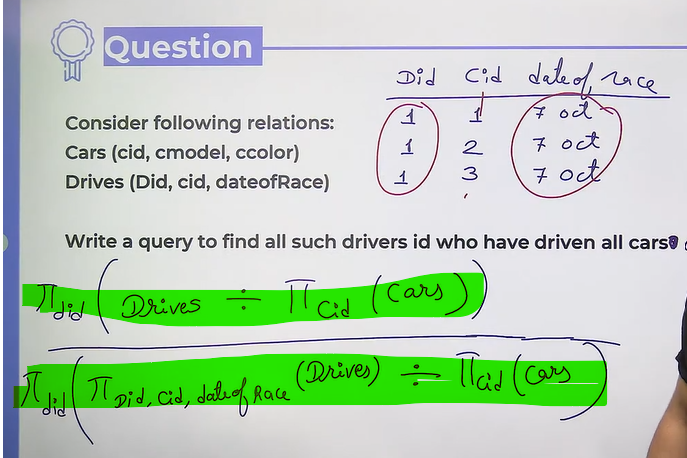 Question
Did Cid date of race
1 1 7 oct
1 2 7 oct
1 3 7 oct
Consider following relations:
Cars (cid, cmodel, ccolor)
Drives (Did, cid, dateofRace)
Write a query to find all such drivers id who have driven all cars?
π did ( Drives ÷ π Cid (Cars) )
π did ( π Did, Cid, date of Race (Drives) ÷ π Cid (Cars )